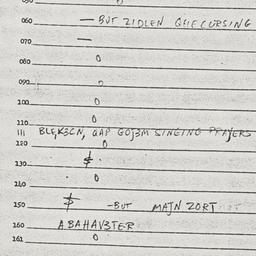 060 — BUT ZIDLEN QHECURSING
070 —
080 0
090 0
100 0
110 0
111 BLĘKECN, QAP GOJ3M SINGING PRAYERS
120 0
130 $
210 0
150 $ -BUT MAJN ZORT
160 ABAHAV3TER
161 0